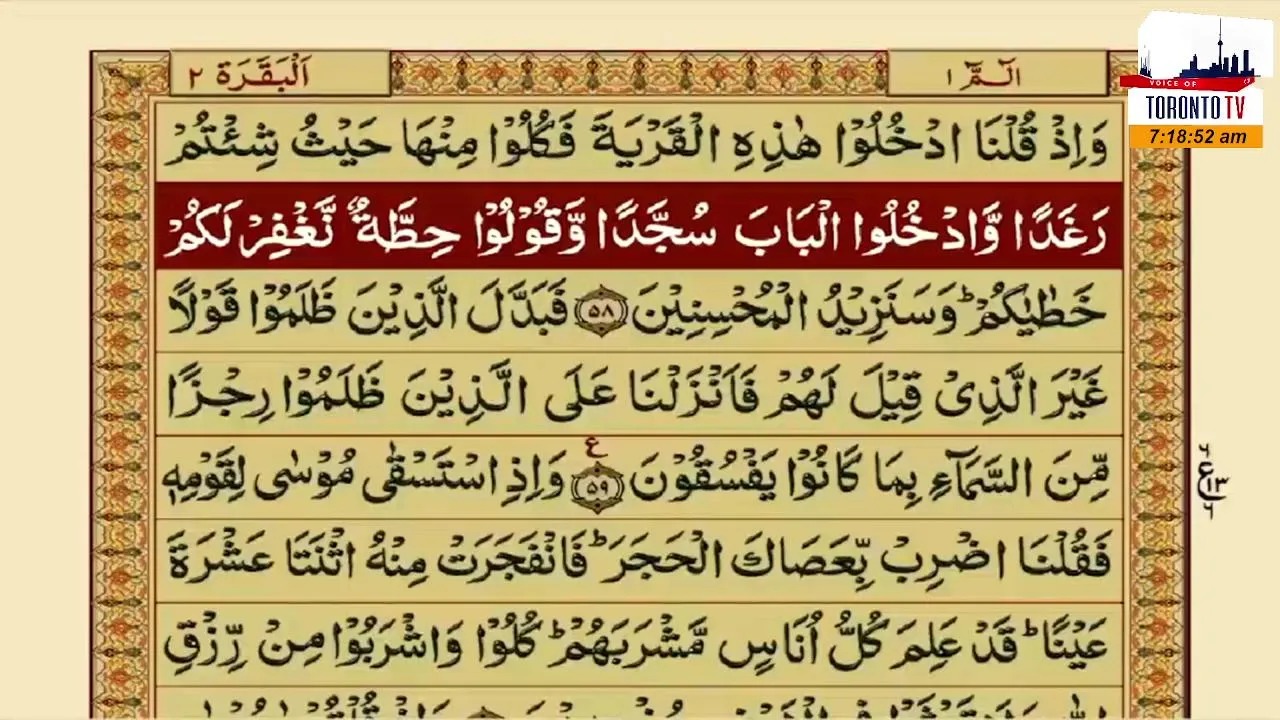 اَلْبَقَرَة ٢
الٓمّٓ ١
VOICE OF
TORONTO TV
7:18:52 am
وَاِذْ قُلْنَا ادْخُلُوْا هٰذِهِ الْقَرْيَةَ فَكُلُوْا مِنْهَا حَيْثُ شِئْتُمْ
رَغَدًا وَّادْخُلُوا الْبَابَ سُجَّدًا وَّقُوْلُوْا حِطَّةٌ نَّغْفِرْ لَكُمْ
خَطٰيٰكُمْ ؕ وَسَنَزِيْدُ الْمُحْسِنِيْنَ ٥٨ فَبَدَّلَ الَّذِيْنَ ظَلَمُوْا قَوْلًا
غَيْرَ الَّذِىْ قِيْلَ لَهُمْ فَاَنْزَلْنَا عَلَى الَّذِيْنَ ظَلَمُوْا رِجْزًا
مِّنَ السَّمَآءِ بِمَا كَانُوْا يَفْسُقُوْنَ ٥٩ ع وَاِذِ اسْتَسْقٰى مُوْسٰى لِقَوْمِهٖ
٦ ع ١٣ ٦
فَقُلْنَا اضْرِبْ بِّعَصَاكَ الْحَجَرَ ؕ فَانْفَجَرَتْ مِنْهُ اثْنَتَا عَشْرَةَ
عَيْنًا ؕ قَدْ عَلِمَ كُلُّ اُنَاسٍ مَّشْرَبَهُمْ ؕ كُلُوْا وَاشْرَبُوْا مِنْ رِّزْقِ